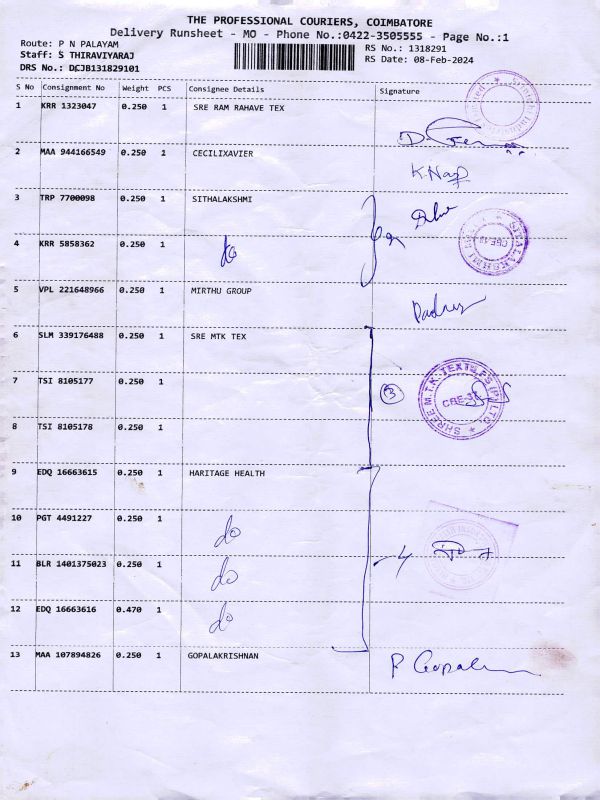 THE PROFESSIONAL COURIERS, COIMBATORE
Delivery Runsheet - MO - Phone No.:0422-3505555 - Page No.:1
Route: P N PALAYAM
RS No.: 1318291
Staff: S THIRAVIYARAJ
RS Date: 08-Feb-2024
DRS No.: DCJB131829101
S No Consignment No Weight PCS Consignee Details Signature
1 KRR 1323047 0.250 1 SRE RAM RAHAVE TEX
2 MAA 944166549 0.250 1 CECILIXAVIER
3 TRP 7700098 0.250 1 SITHALAKSHMI
4 KRR 5858362 0.250 1 do
5 VPL 221648966 0.250 1 MIRTHU GROUP
6 SLM 339176488 0.250 1 SRE MTK TEX
7 TSI 8105177 0.250 1 3 SHREE M.T.K TEXTILES (P) LTD.
8 TSI 8105178 0.250 1
9 EDQ 16663615 0.250 1 HARITAGE HEALTH
10 PGT 4491227 0.250 1 do
11 BLR 1401375023 0.250 1 do
12 EDQ 16663616 0.470 1 do
13 MAA 107894826 0.250 1 GOPALAKRISHNAN P Gopal